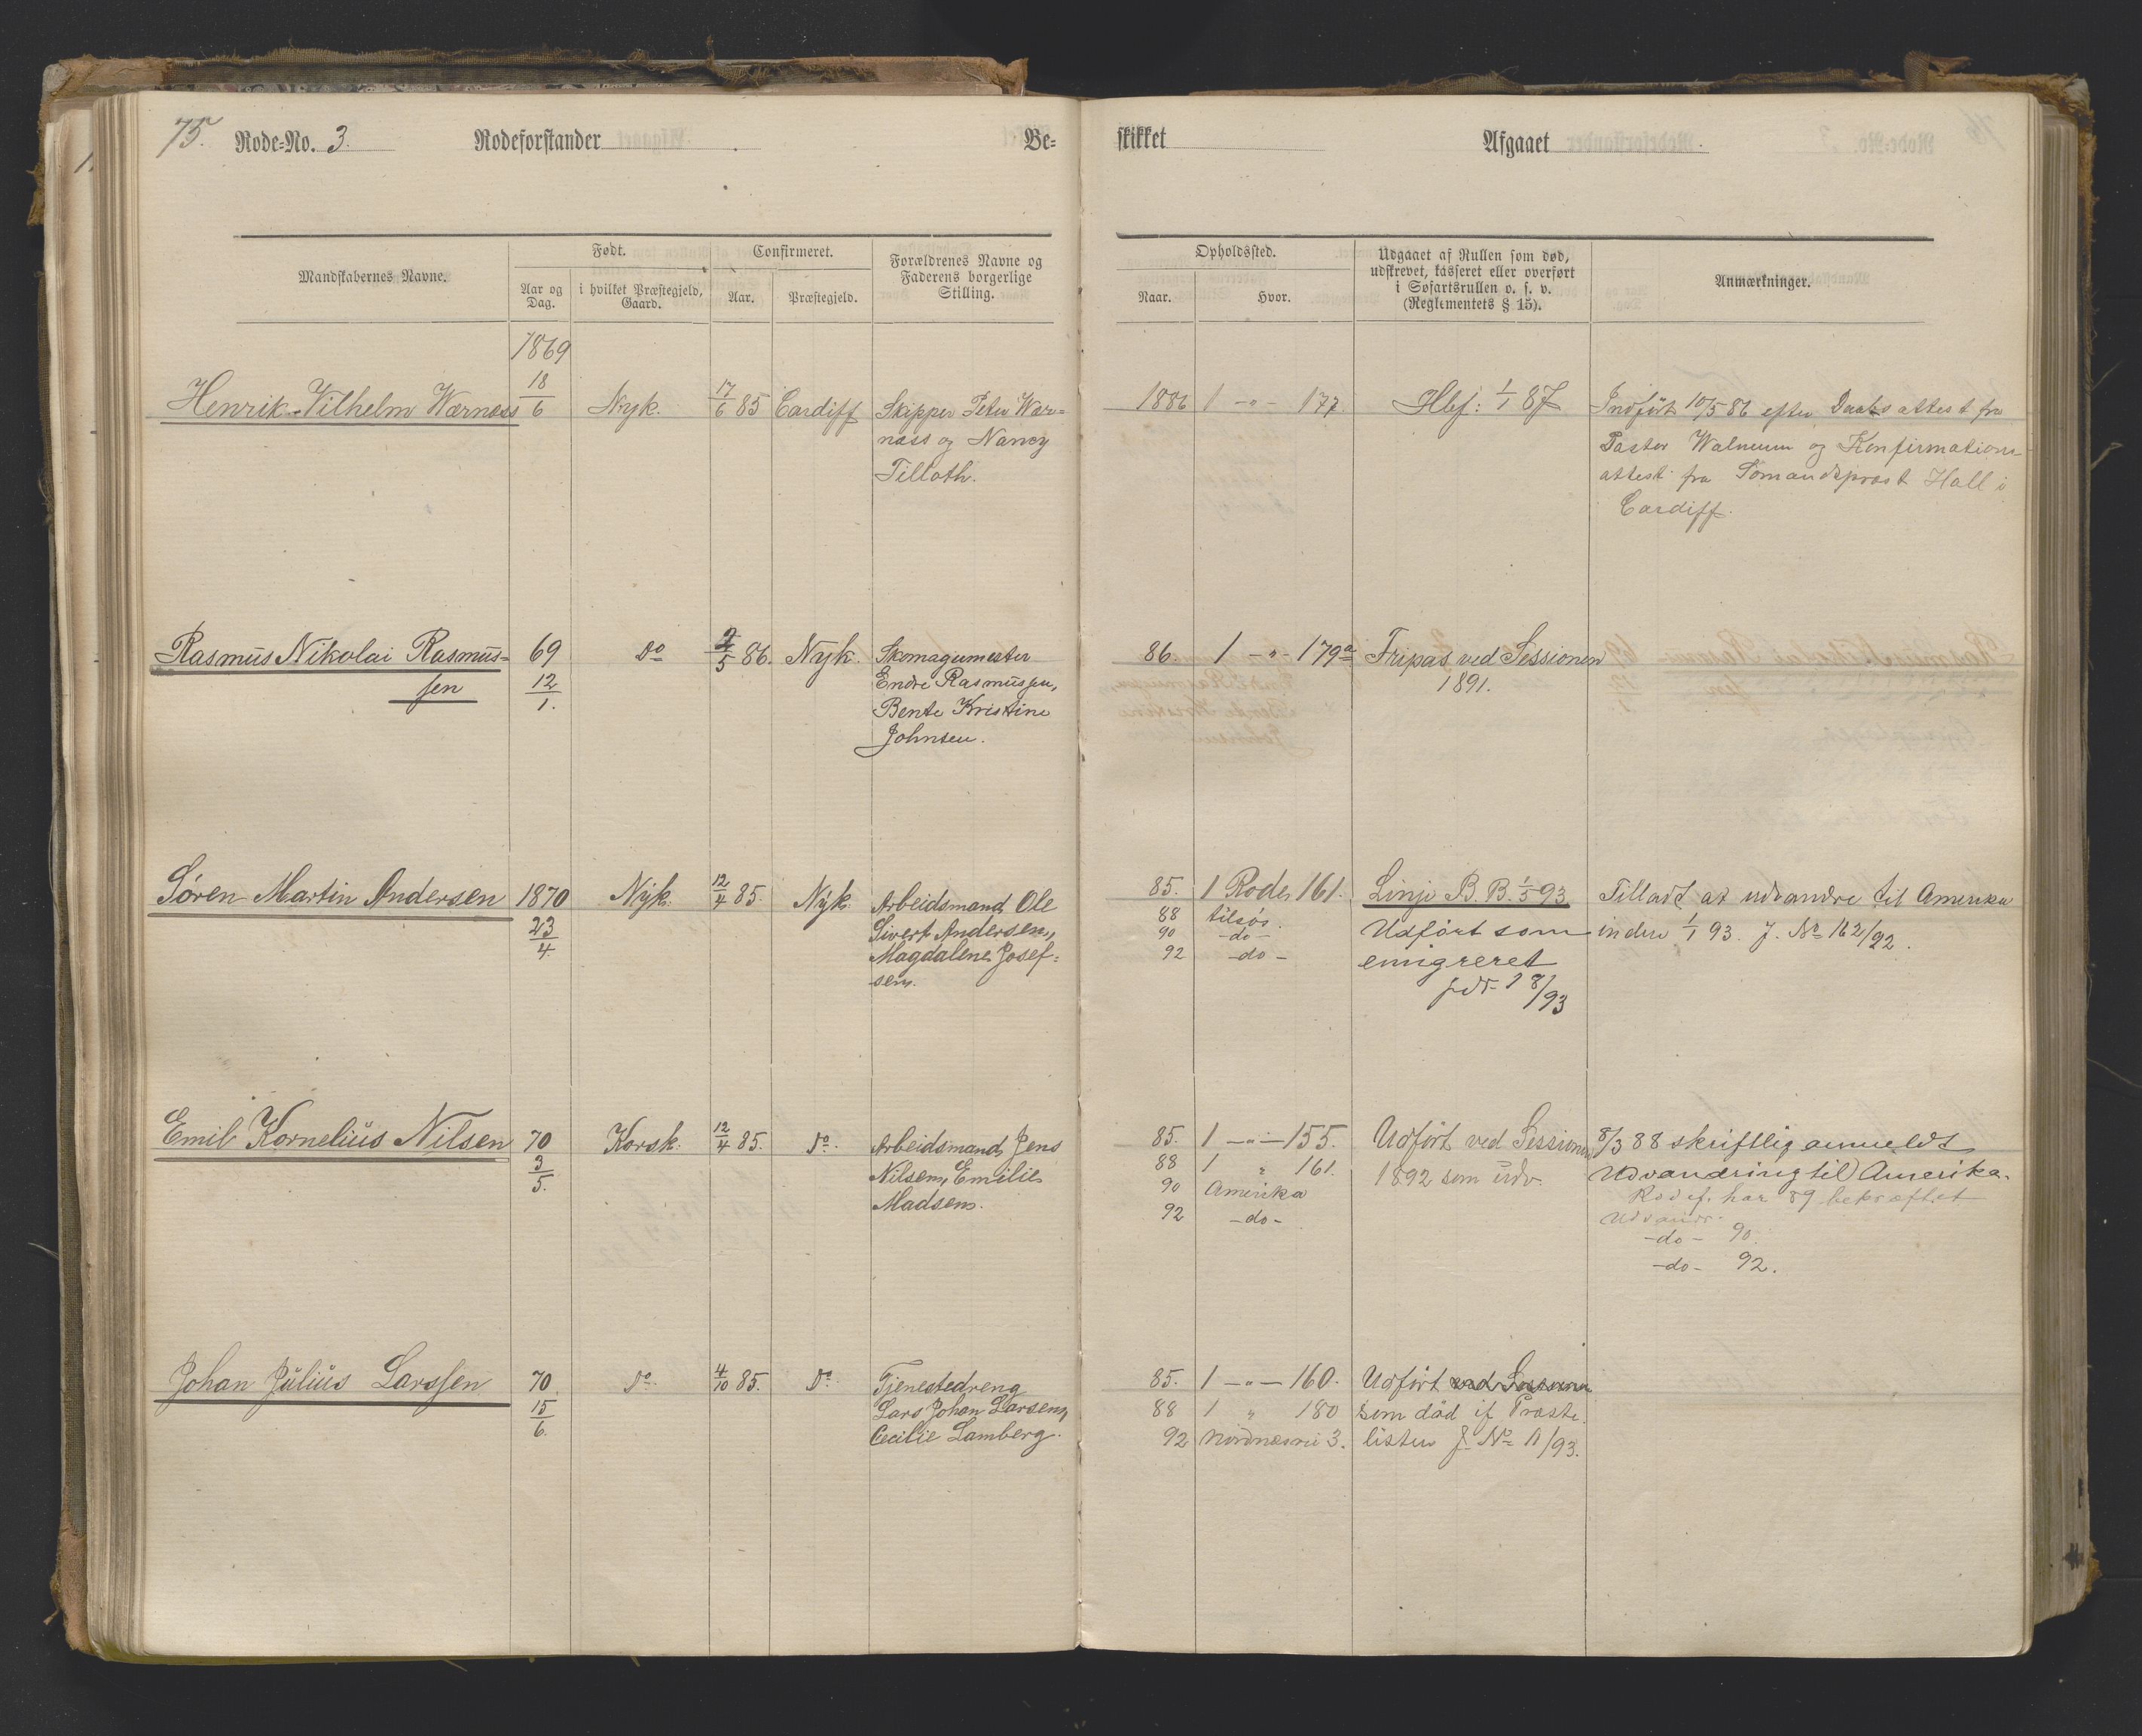 75. Rode-No. 3. Rodeforstander Be-
skikket Afgaaet
Mandskabernes Navne. Født. Aar og Dag. i hvilket Præstegjeld, Gaard. Confirmeret. Aar. Præstegjeld. Forældrenes Navne og Faderens borgerlige Stilling.
Opholdssted. Naar. Hvor. Udgaaet af Rullen som død, udskrevet, kasseret eller overført i Søfartsrullen o. s. v. (Reglementets § 15). Anmærkninger.
1869
Henrik Vilhelm Wærnæss 18/6 Nyk. 17/6 85 Cardiff Skipper Peter Wær-
næss og Nancy
Tilloth.
1886 1 -"- 177 Hlef: 1/1 87 Indført 10/5 86 efter Daabsattest fra
Pastor Walnum og Konfirmations
attest fra Sömandsprest Hall i
Cardiff.
Rasmus Nikolai Rasmus- 69 Do 2/5 86. Nyk. Skomagermester
sen 12/1. Endre Rasmussen,
Bente Kristine
Johnsen.
86. 1 -"- 179a Fripas ved Sessionen
1891.
Sören Martin Andersen 1870 Nyk. 12/4 85. Nyk. Arbeidsmand Ole
23/4. Sivert Andersen,
Magdalene Josef-
sen.
85. 1 Rode 161. Linje B. B. 1/5 93 Tilladt at udvandre til Amerika
88 tilsös. Udført som inden 1/1 93. J. No 162/92.
90 -do- emigreret
92 -do- 18/93
Emil Kornelius Nilsen 70 Korsk. 12/4 85. Do. Arbeidsmand Jens
3/5. Nilsen, Emilie
Madsen.
85. 1 -"- 155. Udført ved Sessionen 8/3 88 skriftlig anmeldt
88 1 " 161. 1892 som udv. Udvandring til Amerika.
90 Amerika Rodef. har 89 bekræftet
92 -do- Udvandr.
-do- 90.
-do- 92.
Johan Julius Larssen 70. Do. 4/10 85. Do. Tjenestedreng
15/6. Lars Johan Larsen,
Cecilie Lamberg.
85. 1 -"- 160. Udført ved Sessionen
88 1 " 180 som död if Præste
92 Nordnæsvei 3. listen J. No 11/93.